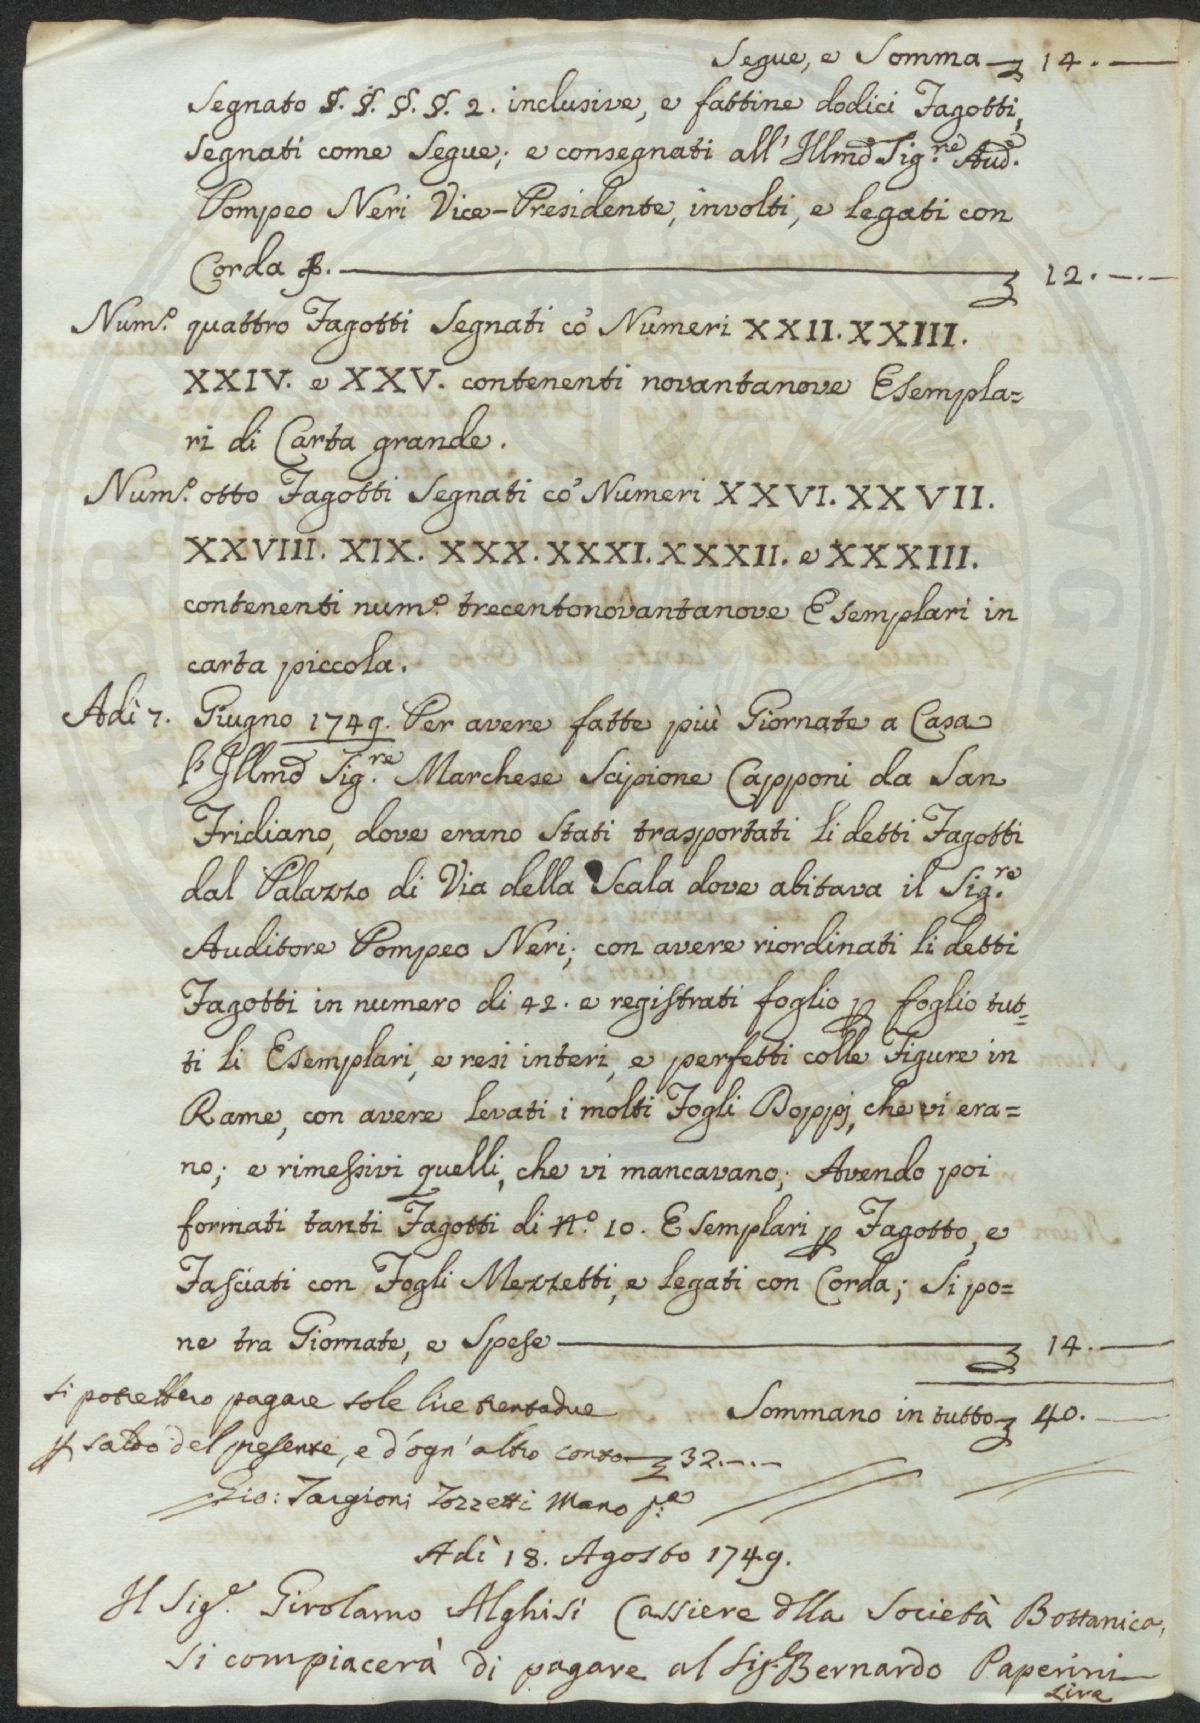 Segue, e Somma ʒ 14. —
Segnato §. §. §. §. 2. inclusive, e fattine dodici Fagotti,
segnati come segue; e consegnati all' Illmo Sig.re Aud.e
Pompeo Neri Vice-Presidente, involti, e legati con
Corda — ʒ 12. —.—
Num.o quattro Fagotti segnati co' Numeri XXII. XXIII.
XXIV. e XXV. contenenti novantanove Esempla=
ri di Carta grande.
Num.o otto Fagotti segnati co' Numeri XXVI. XXVII.
XXVIII. XIX. XXX. XXXI. XXXII. e XXXIII.
contenenti num.o trecentonovantanove Esemplari in
carta piccola.
Adì 7. Giugno 1749. Per avere fatte più Giornate a Casa
l'Illmo Sig.re Marchese Scipione Capponi da San
Fridiano, dove erano stati trasportati li detti Fagotti
dal Palazzo di Via della Scala dove abitava il Sig.re
Auditore Pompeo Neri; con avere riordinati li detti
Fagotti in numero di 42. e registrati foglio p foglio tut=
ti li Esemplari, e resi interi, e perfetti colle Figure in
Rame, con avere levati i molti Fogli Doppj, che vi era=
no; e rimessivi quelli, che vi mancavano; Avendo poi
formati tanti Fagotti di n.o 10. Esemplari p Fagotto, e
Fasciati con Fogli Mezzetti, e legati con Corda; si po=
ne tra Giornate, e Spese — ʒ 14. —
Sommano in tutto ʒ 40. —
si potrebbero pagare sole lire trentadue
p saldo del presente, e d'ogn'altro conto ʒ 32.—.—
Gio: Targioni Tozzetti Mano p.a
Adì 18. Agosto 1749.
Il Sig.e Girolamo Alghisi Cassiere dlla Società Bottanica,
si compiacerà di pagare al Sig.e Bernardo Paperini
Lire